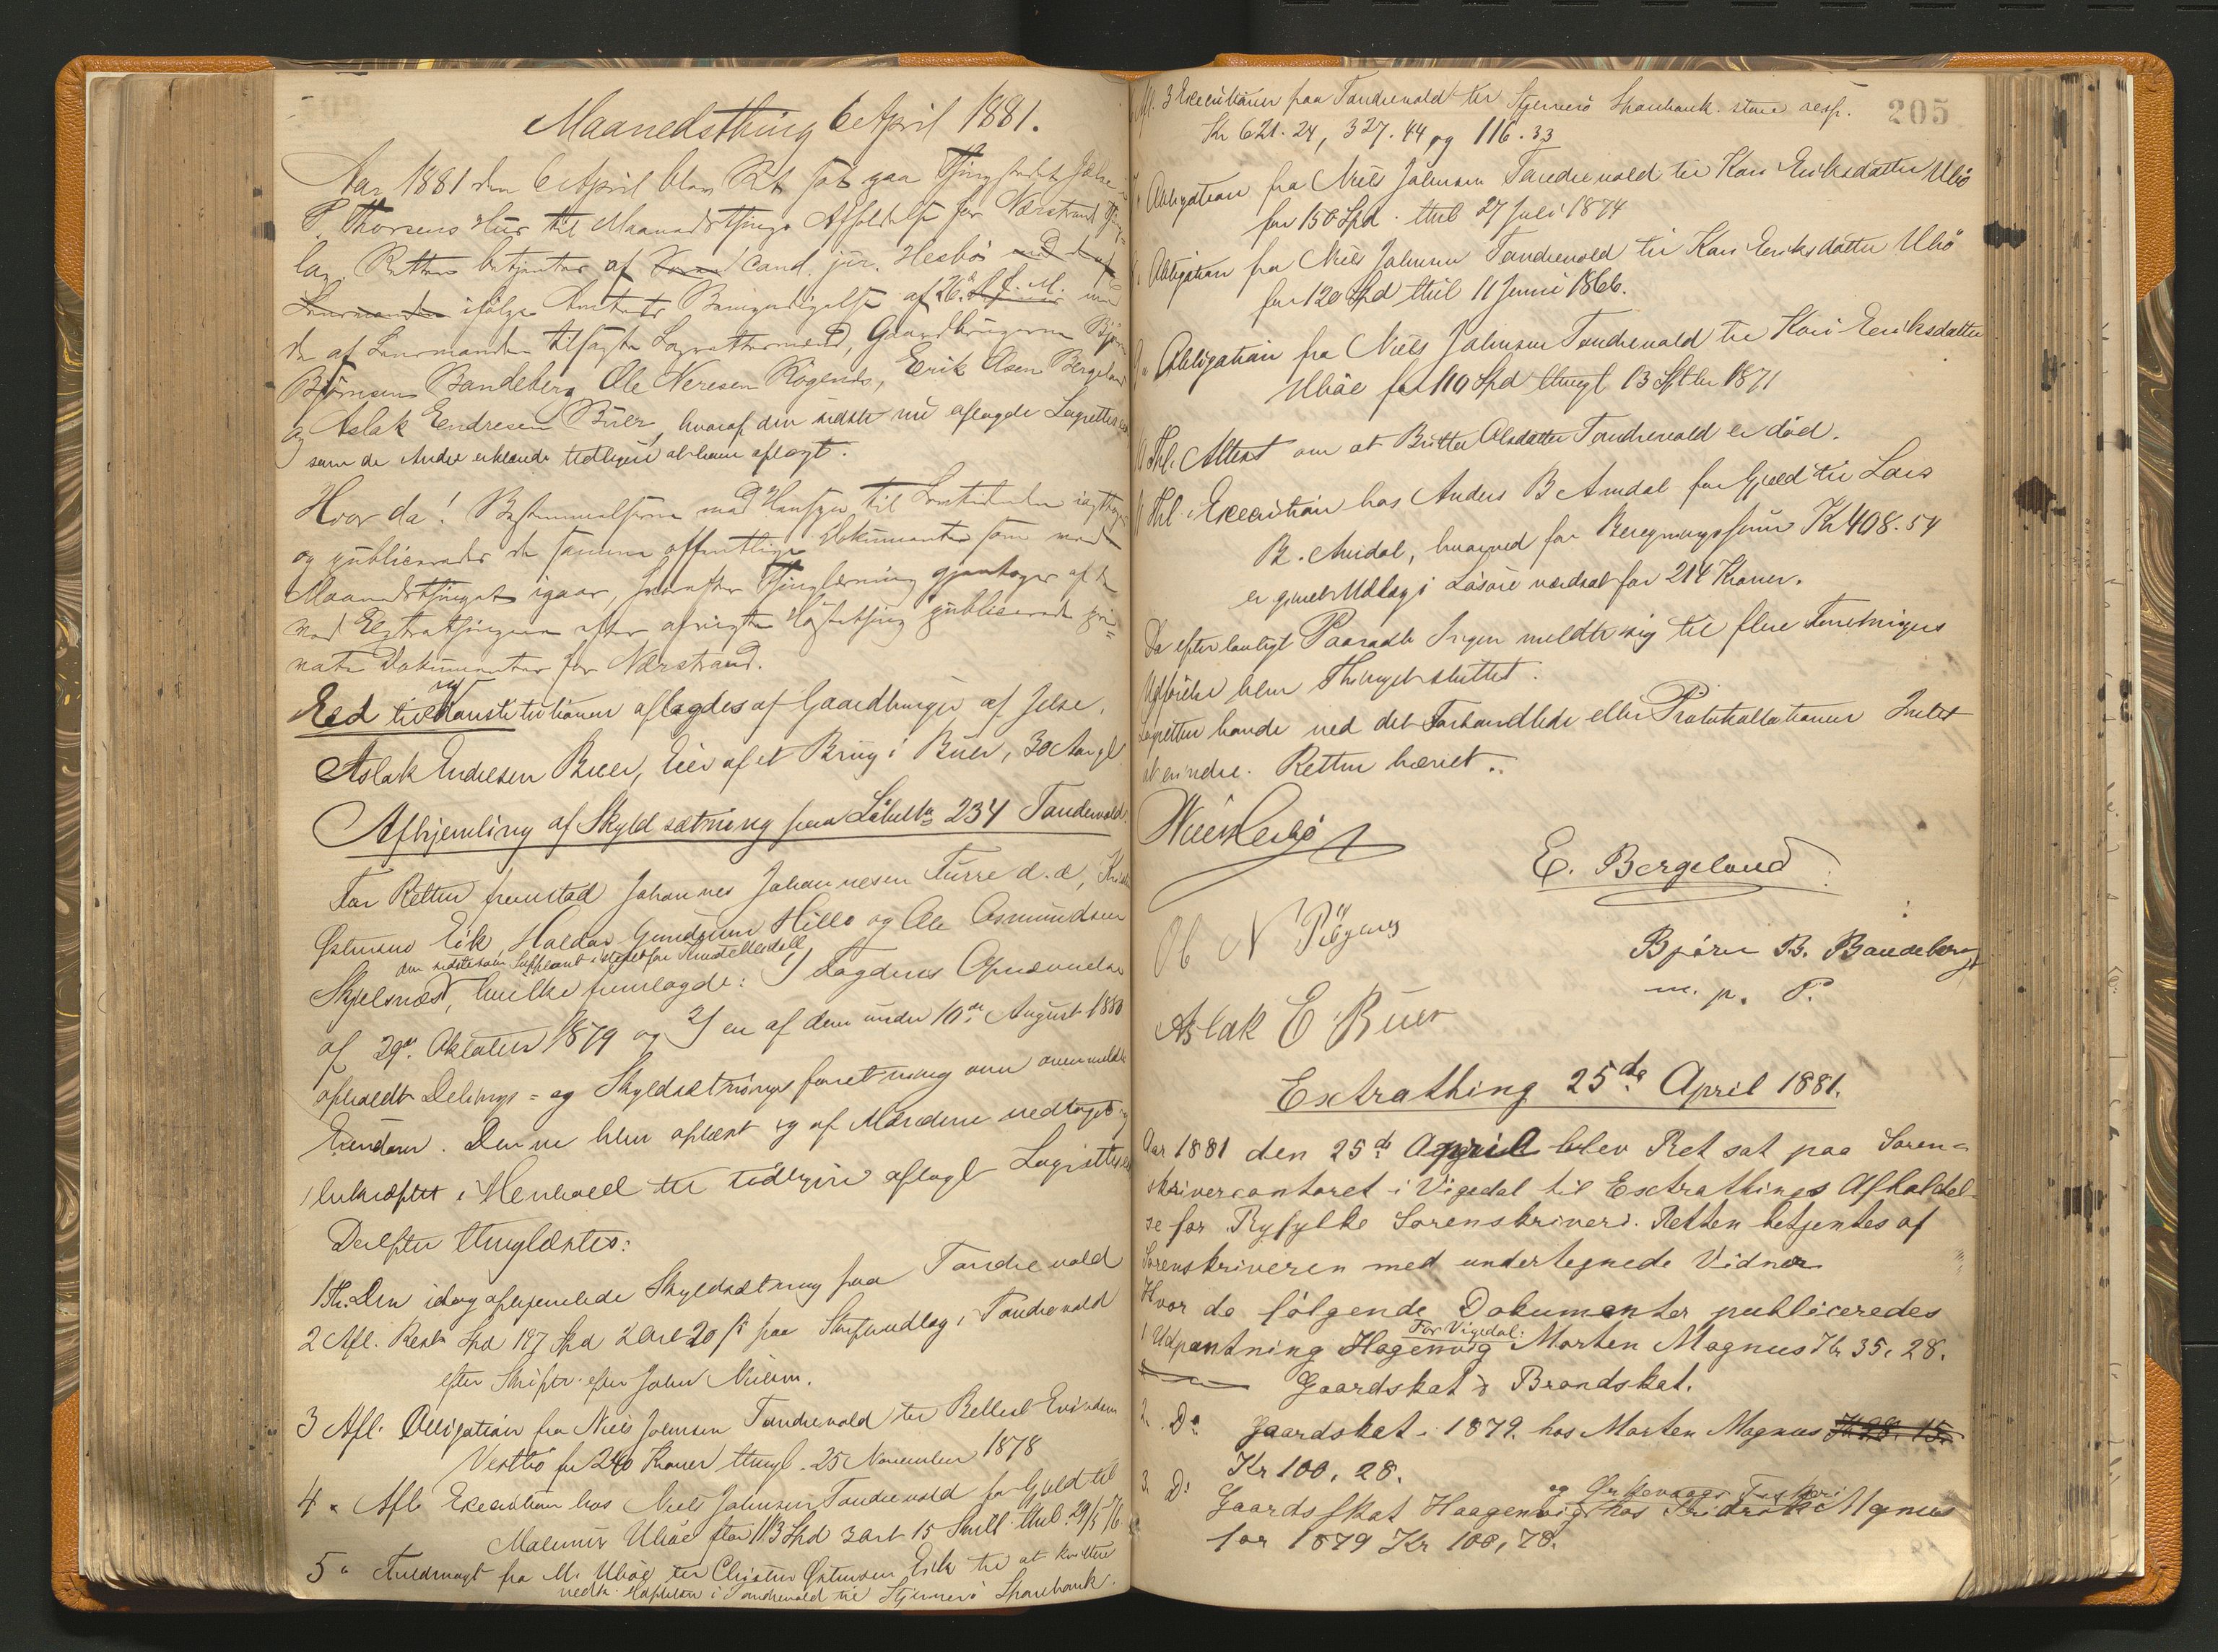 Maanedsthing 6 April 1881.
Aar 1881 den 6 April blev Ret sat paa Thingstedet Jelse i
P. Thorsens Hus til Maanedsthings Afholdelse for Nærstrand Thing=
lag. Retten betjentes af cand. jur. Hesbö med de af
Lensmanden ifølge Amtets Bemyndigelse af 26de f. M. med
de af Lensmanden tilsagte Lagrettesmænd, Gaardbrugerne Bjørn
Bjørnsen Bandeberg Ole Neresen Røgenes, Erik Olsen Bergeland
og Aslak Endresen Buer, hvoraf den sidste nu aflagde Lagrettesed
som de Andre erklærede tidligere at have aflagt.
Hvor da! Bestemmelserne med Hensyn til iagttoges
og publiceredes de samme offentlige Dokumenter som ved
Maanedsthinget igaar, hvorefter Thinglæsning gjentoges af de
ved Extrathingene efter afvigte Høstething publicerede pri=
vate Dokumenter for Nærstrand.
Ed til Konstitutionen aflagdes af Gaardbruger af Jelse.
Aslak Endresen Buer, Eier af et Brug i Buer, 30 Aar gl.
Afhjemling af Skyldsætning paa Løbe No 234 Tandrevold.
For Retten fremstod Johannes Johannesen Furre d. æ,
Østensen Eik, Haldor Gundersen Hille og Ole Asmundsen
den sidste som Suppleant istedetfor
Skjelsnæs, hvilke fremlagde: 1) Fogdens Opnævnelse
af 29de Oktober 1879 og 2) en af dem under 10de August 1880
afholdt Delings= og Skyldsætningsforretning over ovenmeldte
Eiendom. Denne blev oplæst og af Mændene vedtaget og
bekræftet i Henhold til tidligere aflagt Lagrettesed
Derefter thinglæstes:
1 Th. Den idag afhjemlede Skyldsætning paa Tandrevold
2 Afl. Spd 197 Spd 2 Ort 20 ß paa Skifteudlæg i Tandrevold
efter Skifte efter John Nilsen.
3 Afl. Obligation fra Niels Johnsen Tandrevold til
Vestbø for 240 Kroner thingl. 25 November 1878
4 " Afl. Execution hos Niels Johnsen Tandrevold for Gjeld til
Ubøe stor 113 Spd 3 Ort 15 Skill. thl. 29/5 76
5 " Fuldmagt fra M. Ubøe til Christen Østensen Eik til at kvittere
i Tandrevold til Stjernerø Sparebank.
205
Afl. 3 Executioner paa Tandrevold til Stjernerø Sparebank store resp.
Kr 621.24, 327.44 og 116.33
Obligation fra Niels Johnsen Tandrevold til Kari Eriksdatter Ubø
for 150 Spd. thl 27 Juli 1874
Obligation fra Niels Johnsen Tandrevold til Kari Eriksdatter Ubø
for 120 Spd thl 11 Juni 1866.
Obligation fra Niels Johnsen Tandrevold til Kari Eriksdatter
Ubøe for 110 Spd thingl 13 Septbr 1871
Thl. Attest om at Britta Olsdatter Tandrevold er død.
Thl. Execution hos Anders B Amdal for Gjeld til Lars
B. Amdal, hvorved for Beregningssum Kr 408.54
er gjort Udlæg i Løsøre værdsat for 214 Kroner.
Da efter lovligt Paaraab Ingen meldte sig til flere Forretningers
Udførelse blev Thinget sluttet.
Lagretten havde ved det Forhandlede eller Protokollationen Intet
at erindre. Retten hævet.
Hesbø
E. Bergeland
O N Røgenes
Bjørn B. Bandeberg
m. p. P.
Aslak E Buer
Extrathing 25de April 1881.
Aar 1881 den 25de April blev Ret sat paa Soren=
skrivercontoret i Vigedal til Extrathings Afholdel=
se for Ryfylke Sorenskriveri. Retten betjentes af
Sorenskriveren med undertegnede Vidner
Hvor da følgende Dokumenter publiceredes
For Vigedal:
1 Udpantning Hagenvig Morten Magnus Kr 35.28.
Gaardskat & Brandskat.
2. Do Gaardskat 1879 hos Morten Magnus Kr 28.15.
Kr 100.28.
3. Do Gaardsskat Haagenvig hos Magnus
for 1879 Kr 100,78.